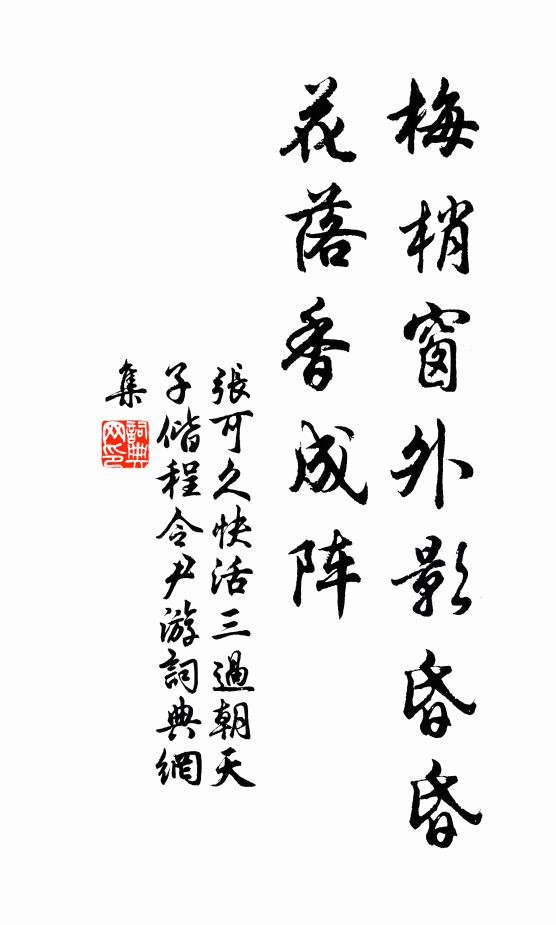 梅梢窗外影昏昏
花落香成阵
張可久快活三過朝天
子偕程令尹游詞典網
集
詞典
网印